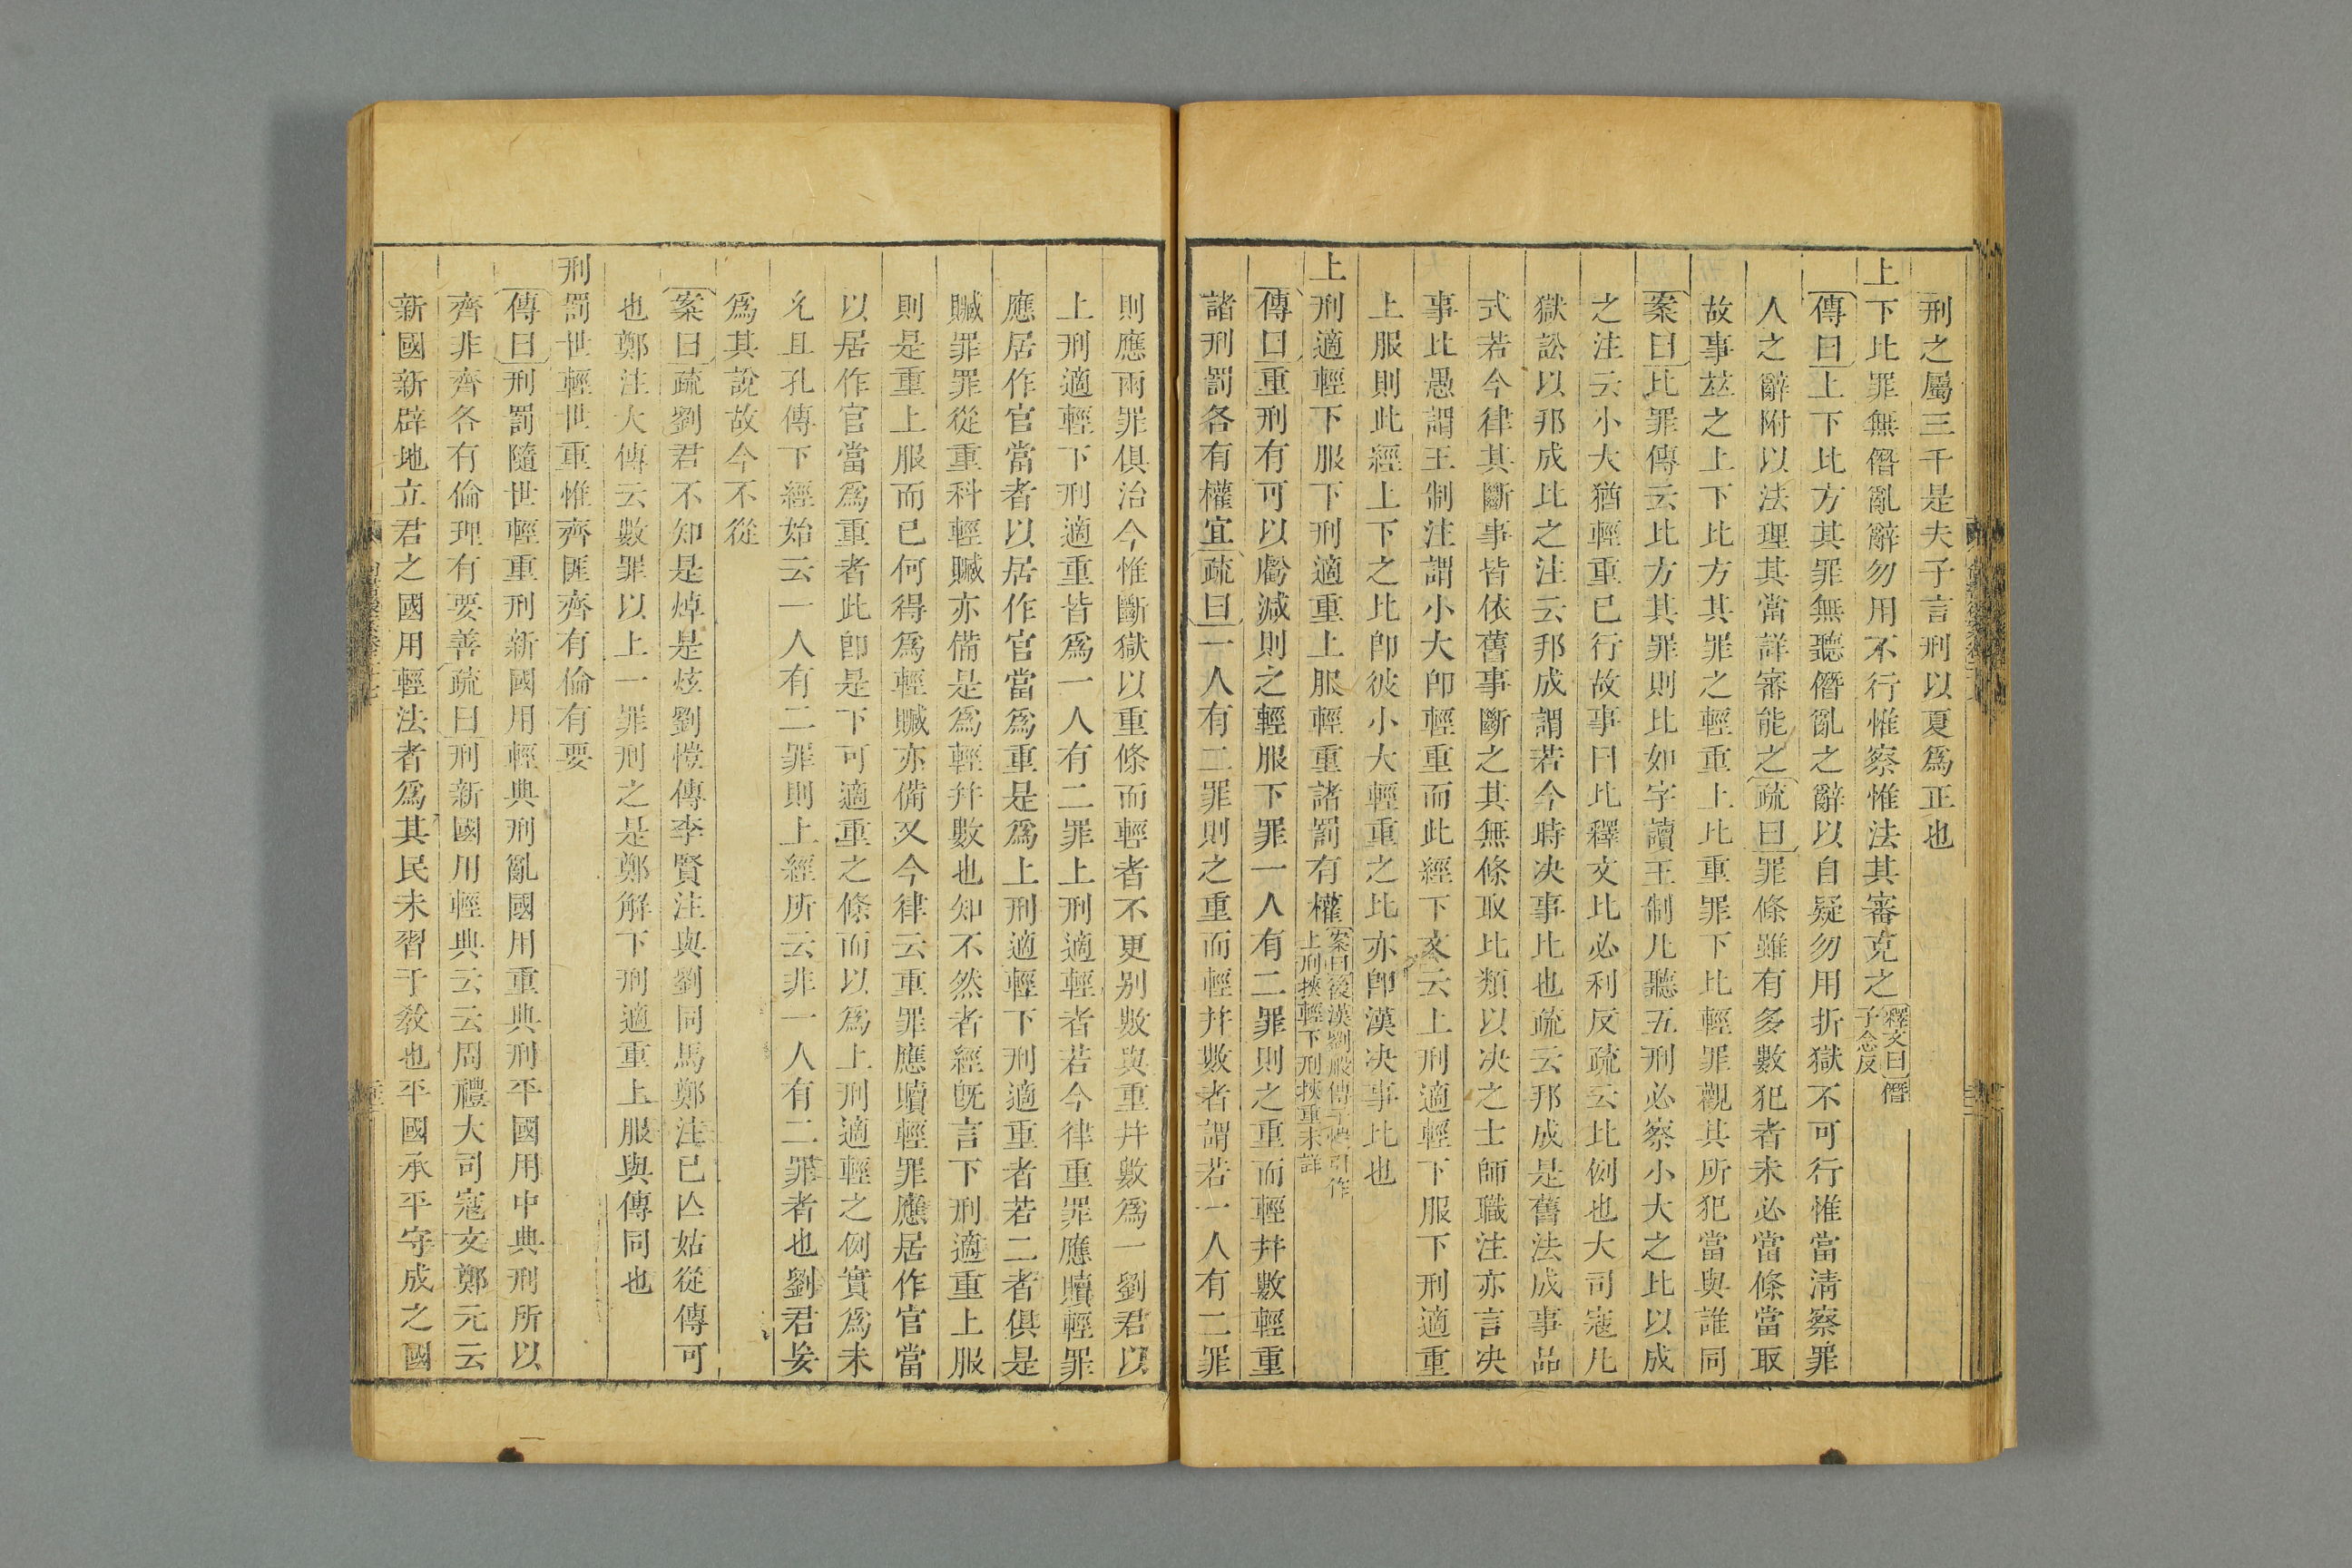 刑之屬三千是夫子言刑以夏爲正也
上下比罪無僭亂辭勿用不行惟察惟法其審克之釋文曰僭
子念反
傳曰上下比方其罪無聽僭亂之辭以自疑勿用折獄不可行惟當淸察罪
人之辭附以法理其當詳審能之疏曰罪條雖有多數犯者未必當條當取
故事並之上下比方其罪之輕重上比重罪下比輕罪觀其所犯當與誰同
案曰比罪傳云比方其罪則比如字讀王制凡聽五刑必察小大之比以成
之注云小大猶輕重已行故事曰比釋文比必利反疏云比例也大司寇凡
獄訟以邦成比之注云邦成謂若今時决事比也疏云邦成是舊法成事品
式若今律其斷事皆依舊事斷之其無條取比類以决之士師職注亦言决
事比愚謂王制注謂小大卽輕重而此經下文云上刑適輕下服下刑適重
上服則此經上下之比卽彼小大輕重之比亦卽漢决事比也
上刑適輕下服下刑適重上服輕重諸罰有權案曰後漢劉般傳子愷引作
上刑挾輕下刑挾重未詳
傳曰重刑有可以虧減則之輕服下罪一人有二罪則之重而輕幷數輕重
諸刑罰各有權宜疏曰一人有二罪則之重而輕幷數者謂若一人有二罪
則應兩罪俱治今惟斷獄以重條而輕者不更别數與重幷數爲一劉君以
上刑適輕下刑適重皆爲一人有二罪上刑適輕者若今律重罪應贖輕罪
應居作官當者以居作官當爲重是爲上刑適輕下刑適重者若二者俱是
贓罪罪從重科輕贓亦備是爲輕幷數也知不然者經旣言下刑適重上服
則是重上服而已何得爲輕贓亦備又今律云重罪應贖輕罪應居作官當
以居作官當爲重者此卽是下可適重之條而以爲上刑適輕之例實爲未
允且孔傳下經始云一人有二罪則上經所云非一人有二罪者也劉君妄
爲其說故今不從
案曰疏劉君不知是焯是炫劉愷傳李賢注與劉同馬鄭注已亾姑從傳可
也鄭注大傳云數罪以上一罪刑之是鄭解下刑適重上服與傳同也
刑罰世輕世重惟齊匪齊有倫有要
傳曰刑罰隨世輕重刑新國用輕典刑亂國用重典刑平國用中典刑所以
齊非齊各有倫理有要善疏曰刑新國用輕典云云周禮大司寇文鄭元云
新國新辟地立君之國用輕法者爲其民未習于敎也平國承平守成之國